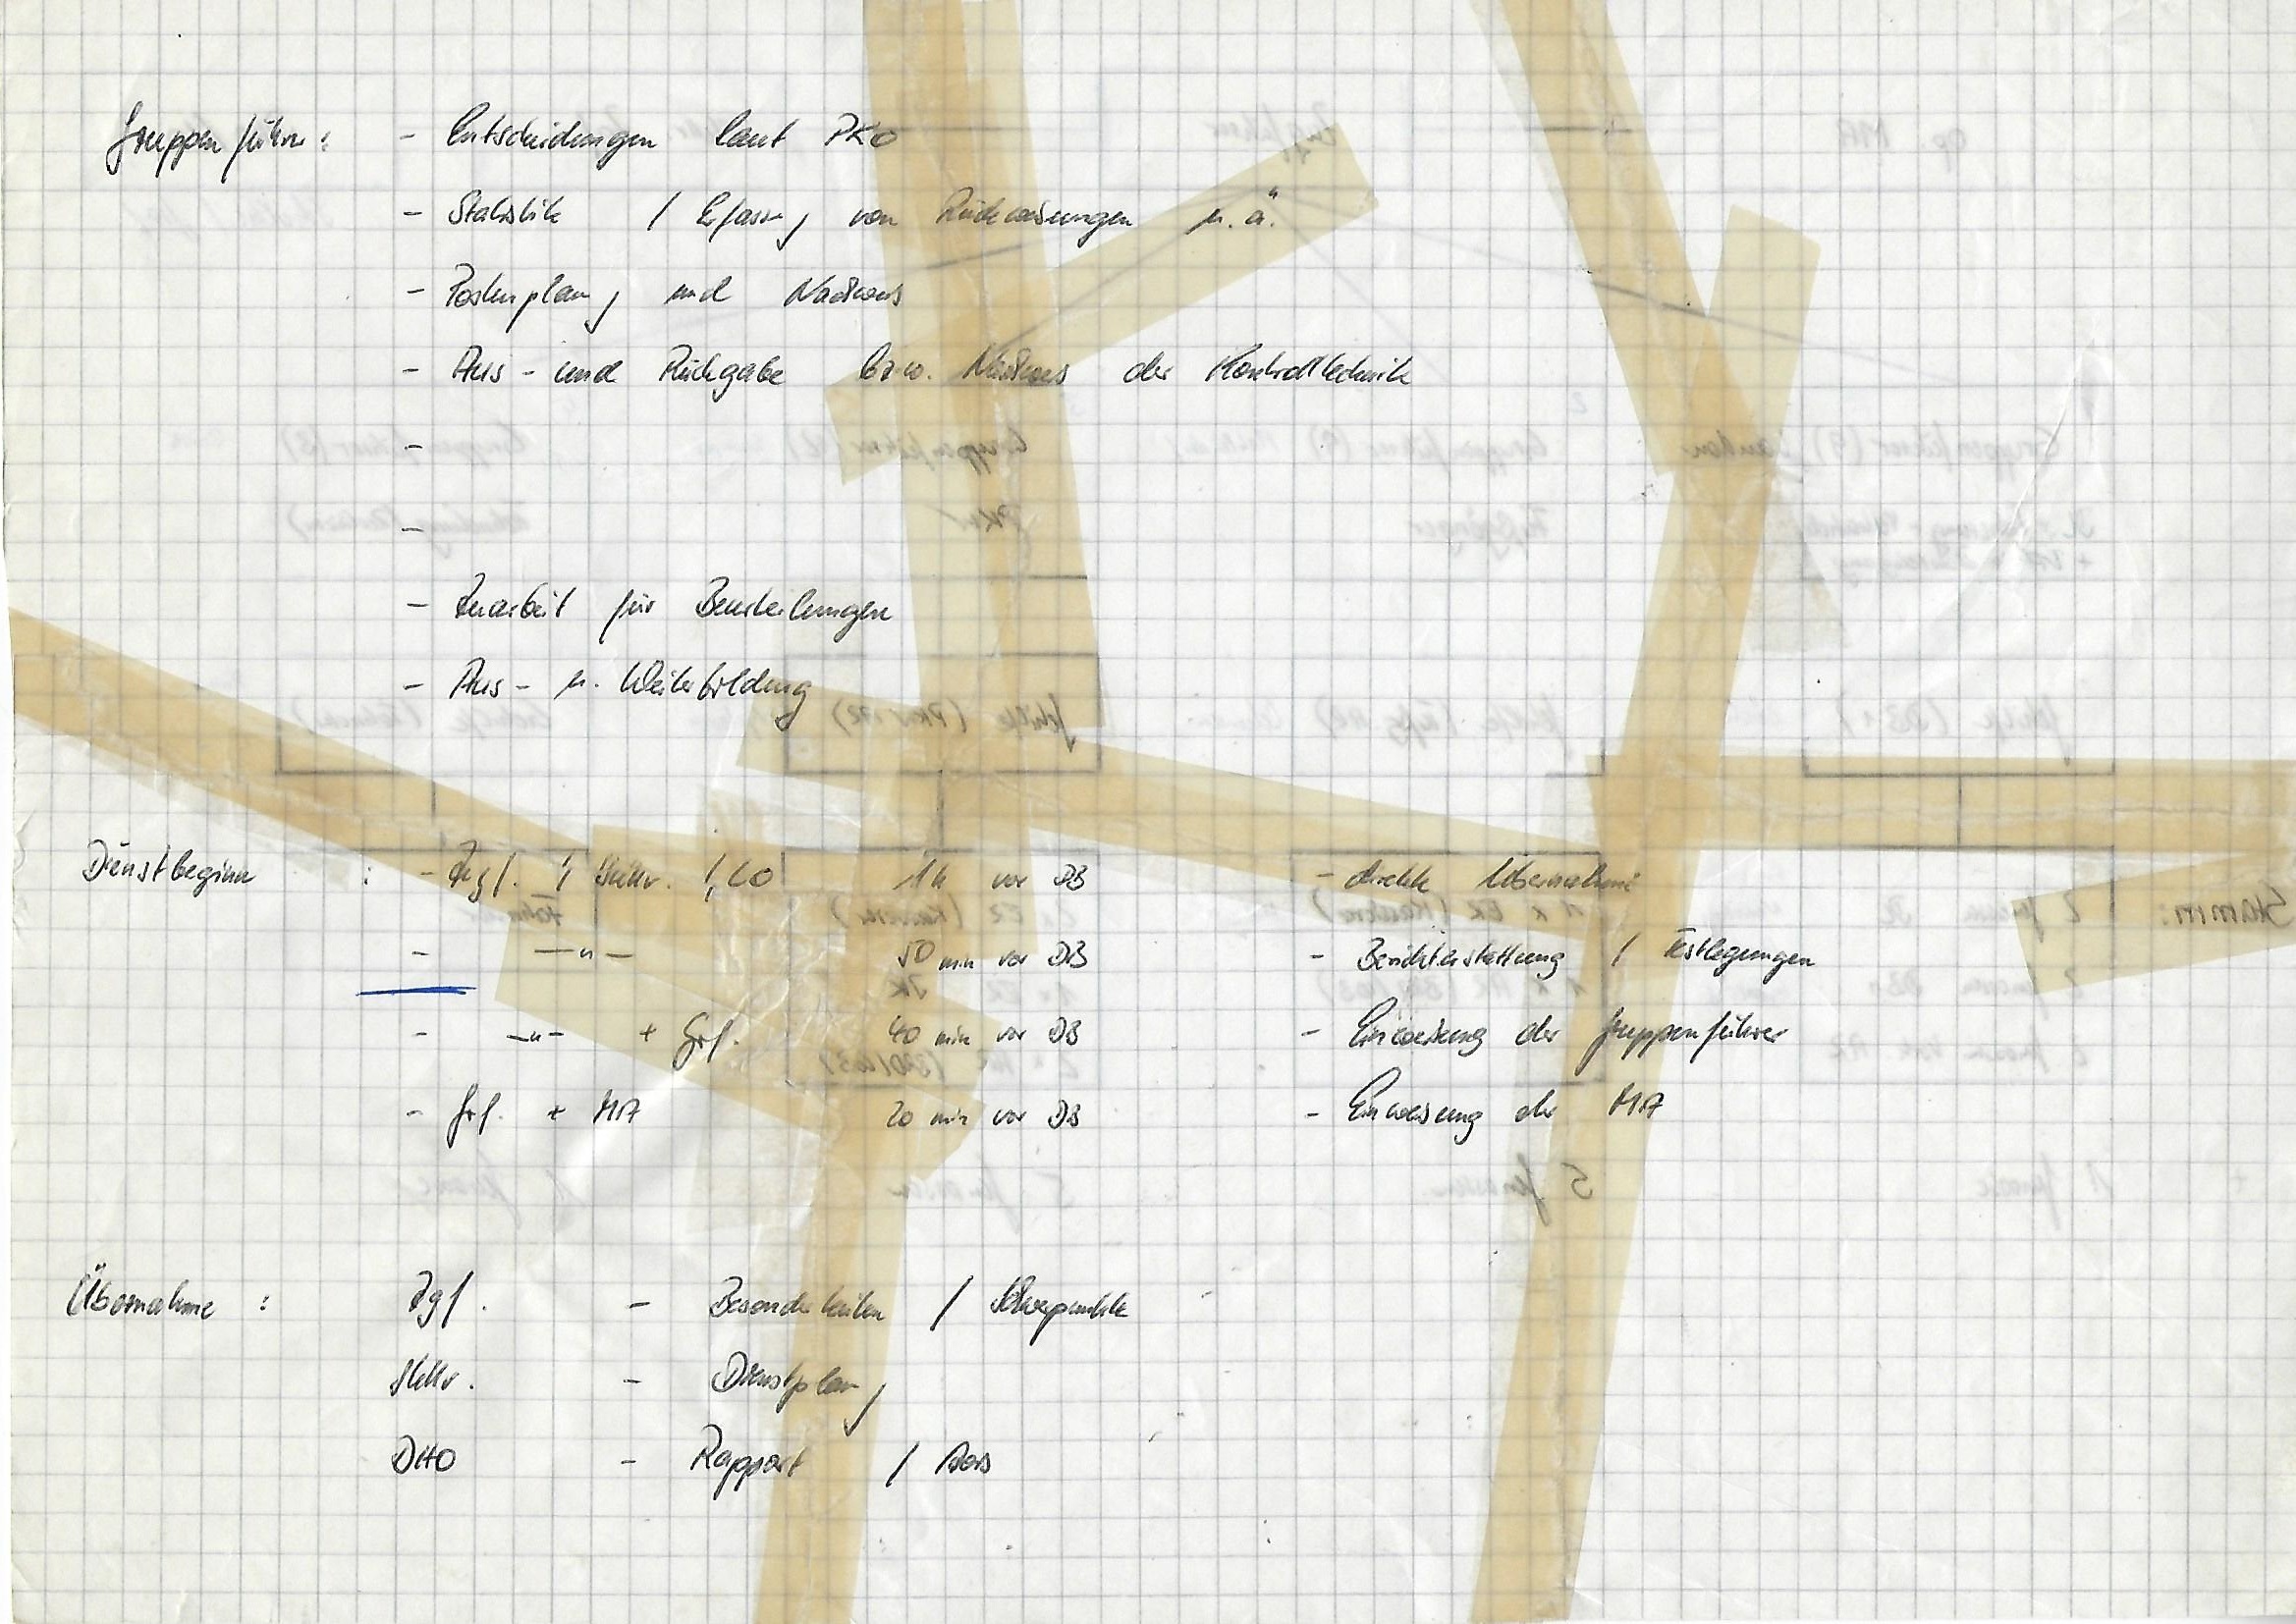 Gruppenführer : - Entscheidungen laut PKO
- Statistik / Erfassung von Rückweisungen u.ä.
- Postenplanung und Nachweis
- Aus- und Rückgabe bzw. Nachweis der Kontrolltechnik
-
-
- Zuarbeit für Beurteilungen
- Aus- u. Weiterbildung
Dienstbeginn : - Zgf. / Stellv. / LO 1h vor DB - direkte Übernahme
- —"— 50 min vor DB - Berichterstattung / Festlegungen
- —"— + Grf. 40 min vor DB - Einweisung der Gruppenführer
- Grf. + MA 20 min vor DB - Einweisung der MA
Übernahme : Zgf. - Besonderheiten / Schwerpunkte
Stellv. - Dienstplanung
DHO - Rapport /